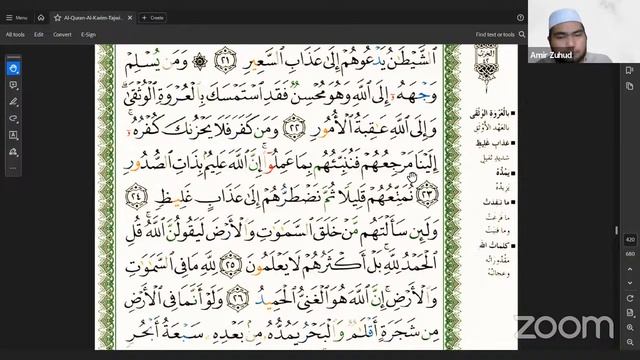 Menu
Al-Quran-Al-Karim-Tajwi...
Create
Sign in
All tools
Edit
Convert
E-Sign
Find text or tools
Amir Zuhud
الشَّيْطَٰنُ يَدْعُوهُمْ إِلَىٰ عَذَابِ السَّعِيرِ ﴿٢١﴾ ۞ وَمَن يُسْلِمْ
وَجْهَهُۥٓ إِلَى اللَّهِ وَهُوَ مُحْسِنٌ فَقَدِ اسْتَمْسَكَ بِالْعُرْوَةِ الْوُثْقَىٰ ۗ
وَإِلَى اللَّهِ عَٰقِبَةُ الْأُمُورِ ﴿٢٢﴾ وَمَن كَفَرَ فَلَا يَحْزُنكَ كُفْرُهُۥٓ ۚ
إِلَيْنَا مَرْجِعُهُمْ فَنُنَبِّئُهُم بِمَا عَمِلُوٓا۟ ۚ إِنَّ اللَّهَ عَلِيمٌۢ بِذَاتِ الصُّدُورِ
﴿٢٣﴾ نُمَتِّعُهُمْ قَلِيلًا ثُمَّ نَضْطَرُّهُمْ إِلَىٰ عَذَابٍ غَلِيظٍ ﴿٢٤﴾
وَلَئِن سَأَلْتَهُم مَّنْ خَلَقَ السَّمَٰوَٰتِ وَالْأَرْضَ لَيَقُولُنَّ اللَّهُ ۚ قُلِ
الْحَمْدُ لِلَّهِ ۚ بَلْ أَكْثَرُهُمْ لَا يَعْلَمُونَ ﴿٢٥﴾ لِلَّهِ مَا فِى السَّمَٰوَٰتِ
وَالْأَرْضِ ۚ إِنَّ اللَّهَ هُوَ الْغَنِىُّ الْحَمِيدُ ﴿٢٦﴾ وَلَوْ أَنَّمَا فِى الْأَرْضِ
مِن شَجَرَةٍ أَقْلَٰمٌ وَالْبَحْرُ يَمُدُّهُۥ مِنۢ بَعْدِهِۦ سَبْعَةُ أَبْحُرٍ
الحزب
٤٢
بالعروة الوثقى
بالعهد الأوثق
عذاب غليظ
شديد ثقيل
يمده
يزيده
ما نفدت
ما فرغت
وما فنيت
كلمات الله
مقدوراته
وعجائبه
420
680
zoom